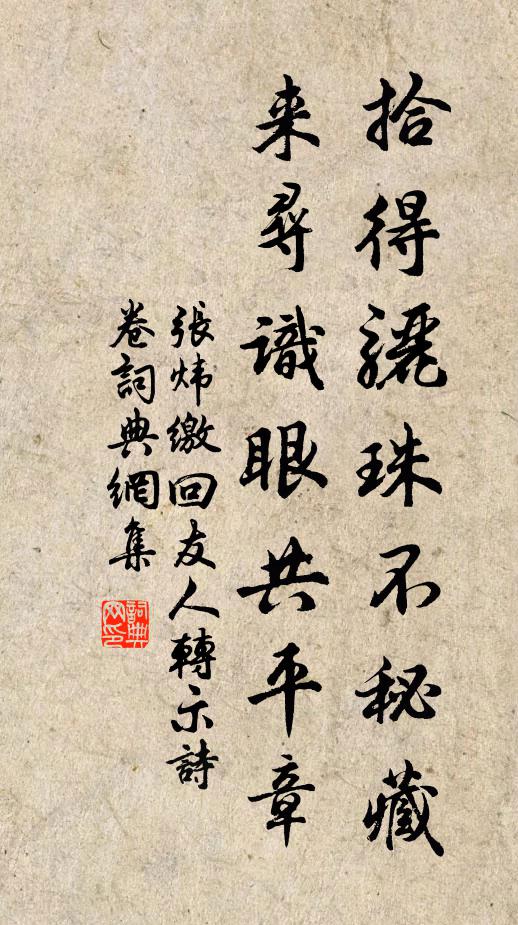 拾得驪珠不秘藏
来尋識眼共平章
張炜繳回友人轉示詩
卷詞典網集
詞典
网印